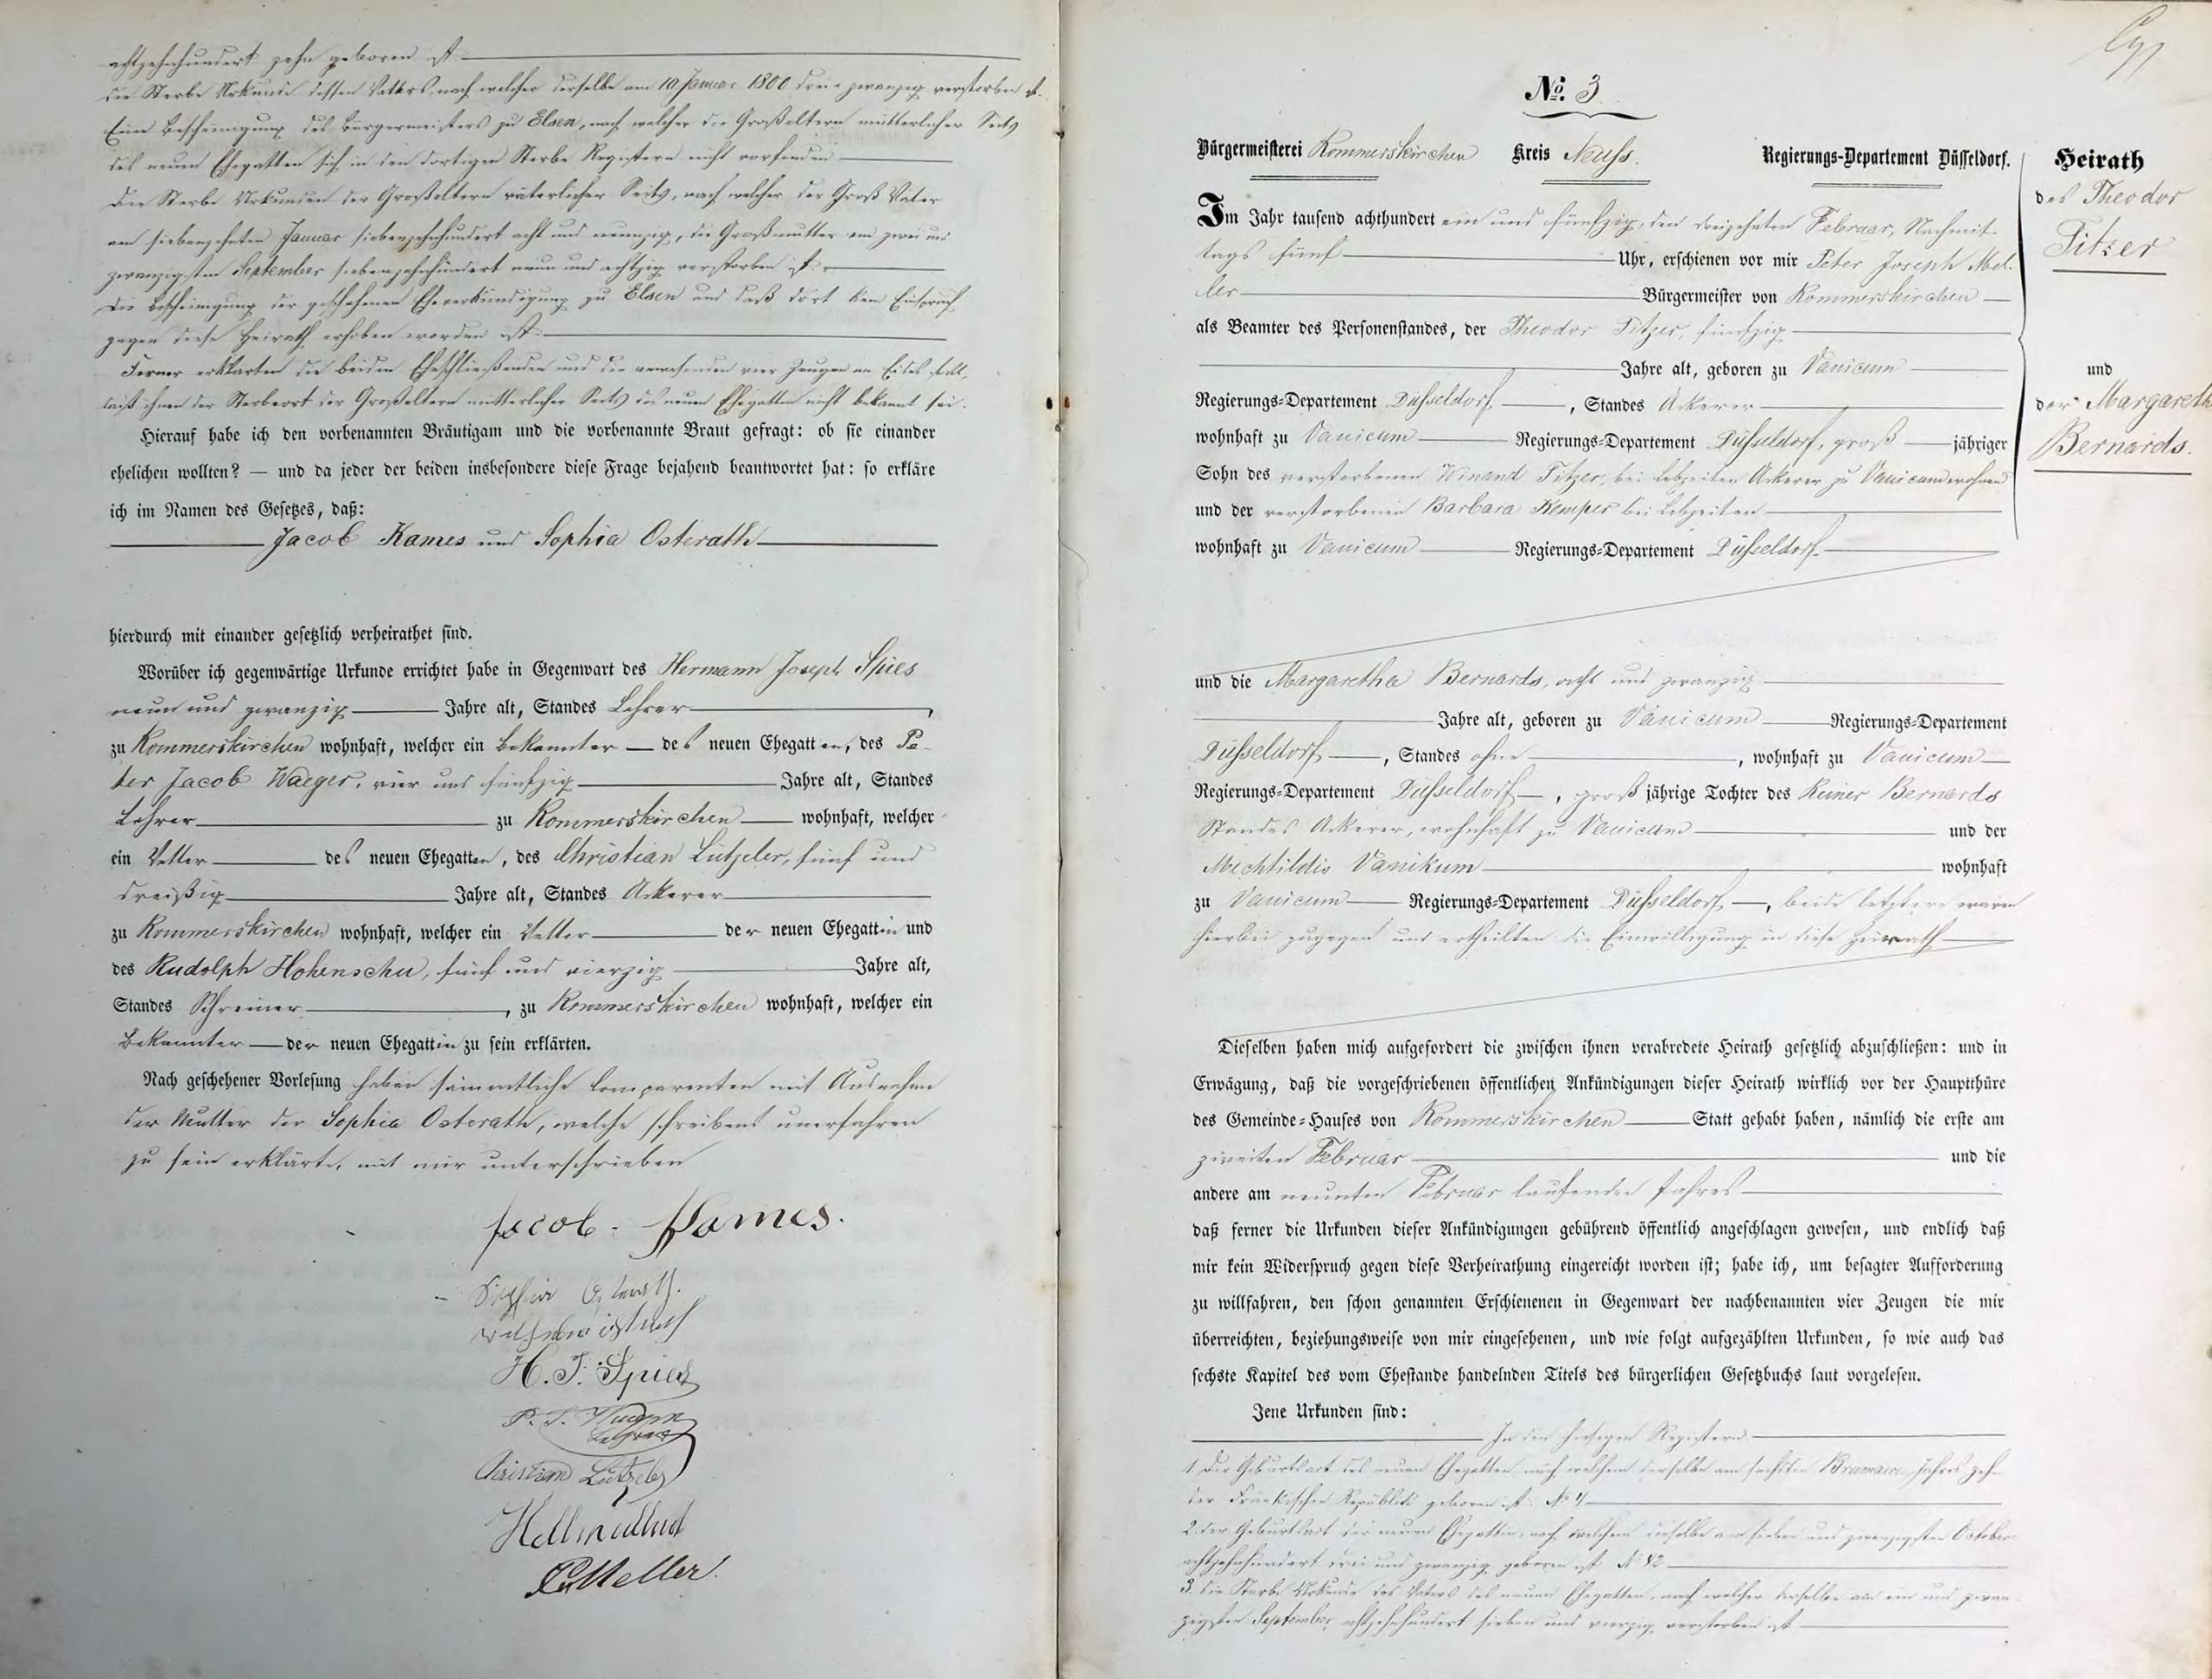 achtzehnhundert zehn geboren ist
die Sterbe Urkunde dessen Vaters, nach welcher derselbe am 10 Januar 1800 drei & zwanzig verstorben ist.
Eine Bescheinigung des Bürgermeisters zu Elsen, nach welcher die Großeltern mütterlicher Seits
des neuen Ehegatten sich in den dortigen Sterbe Registern nicht vorfinden
Die Sterbe Urkunden der Großeltern väterlicher Seits, nach welcher der Groß Vater
am siebenzehnten Januar siebenzehnhundert acht und neunzig, die Großmutter am zwei und
zwanzigsten September siebenzehnhundert neun und achtzig verstorben ist
Die Bescheinigung der geschehenen Eheverkündigung zu Elsen und daß dort kein Einspruch
gegen diese Heirath erhoben worden ist.
Ferner erklärten die beiden Eheschließenden und die anwesenden vier Zeugen an Eides statt,
daß ihnen der Sterbeort der Großeltern mütterlicher Seits des neuen Ehegatten nicht bekannt sei.
Hierauf habe ich den vorbenannten Bräutigam und die vorbenannte Braut gefragt: ob sie einander
ehelichen wollten? — und da jeder der beiden insbesondere diese Frage bejahend beantwortet hat: so erkläre
ich im Namen des Gesetzes, daß:
Jacob Kames und Sophia Osterath
hierdurch mit einander gesetzlich verheirathet sind.
Worüber ich gegenwärtige Urkunde errichtet habe in Gegenwart des Hermann Joseph Spies
neun und zwanzig Jahre alt, Standes Lehrer,
zu Kommerskirchen wohnhaft, welcher ein Bekannter des neuen Ehegatten, des Pe-
ter Jacob Waeger, vier und fünfzig Jahre alt, Standes
Lehrer zu Rommerskirchen wohnhaft, welcher
ein Vetter des neuen Ehegatten, des Christian Lützeler, fünf und
dreißig Jahre alt, Standes Ackerer
zu Rommerskirchen wohnhaft, welcher ein Vetter der neuen Ehegattin und
des Rudolph Hohenschu, fünf und vierzig Jahre alt,
Standes Schreiner, zu Rommerskirchen wohnhaft, welcher ein
Bekannter der neuen Ehegattin zu sein erklärten.
Nach geschehener Vorlesung haben sämmtliche Comparenten mit Ausnahme
der Mutter der Sophia Osterath, welche schreibens unerfahren
zu sein erklärte, mit mir unterschrieben
Jacob Kames.
Sophia Osterath.
H. J. Spies
P. J.
Lehrer
Christian Lützeler
Meller
No. 3
Bürgermeisterei Rommerskirchen Kreis Neuss. Regierungs-Departement Düsseldorf.
Heirath
des Theodor
Titzer
und
der Margareth
Bernards.
Im Jahr tausend achthundert ein und fünfzig, den dreizehnten Februar, Nachmit-
tags fünf Uhr, erschienen vor mir Peter Joseph Mel-
ler Bürgermeister von Rommerskirchen
als Beamter des Personenstandes, der Theodor Titzer, fünfzig
Jahre alt, geboren zu Vanicum
Regierungs-Departement Düsseldorf, Standes Ackerer
wohnhaft zu Vanicum Regierungs-Departement Düsseldorf, groß jähriger
Sohn des verstorbenen Winand Titzer, bei Lebzeiten Ackerer zu Vanicum wohnend
und der verstorbenen Barbara Kemper bei Lebzeiten
wohnhaft zu Vanicum Regierungs-Departement Düsseldorf.
und die Margaretha Bernards, acht und zwanzig
Jahre alt, geboren zu Vanicum Regierungs-Departement
Düsseldorf, Standes ohne, wohnhaft zu Vanicum
Regierungs-Departement Düsseldorf, groß jährige Tochter des Reiner Bernards
Standes Ackerer, wohnhaft zu Vanicum und der
Mechtildis Vanikum wohnhaft
zu Vanicum Regierungs-Departement Düsseldorf, beide letztere waren
hierbei zugegen und ertheilten die Einwilligung in diese Heirath
Dieselben haben mich aufgefordert die zwischen ihnen verabredete Heirath gesetzlich abzuschließen: und in
Erwägung, daß die vorgeschriebenen öffentlichen Ankündigungen dieser Heirath wirklich vor der Hauptthüre
des Gemeinde-Hauses von Rommerskirchen Statt gehabt haben, nämlich die erste am
zweiten Februar und die
andere am neunten Februar laufenden Jahres
daß ferner die Urkunden dieser Ankündigungen gebührend öffentlich angeschlagen gewesen, und endlich daß
mir kein Widerspruch gegen diese Verheirathung eingereicht worden ist; habe ich, um besagter Aufforderung
zu willfahren, den schon genannten Erschienenen in Gegenwart der nachbenannten vier Zeugen die mir
überreichten, beziehungsweise von mir eingesehenen, und wie folgt aufgezählten Urkunden, so wie auch das
sechste Kapitel des vom Ehestande handelnden Titels des bürgerlichen Gesetzbuchs laut vorgelesen.
Jene Urkunden sind:
In den hiesigen Registern
1. Der Geburtsact des neuen Ehegatten nach welchem derselbe am sechsten Brumaire Jahres zehn
der Fränkischen Republik geboren ist.
2. der Geburtsact der neuen Ehegattin, nach welchem dieselbe am sieben und zwanzigsten October
achtzehnhundert drei und zwanzig geboren ist No 42
3. die Sterbe Urkunde des Vaters des neuen Ehegatten, nach welcher derselbe am ein und zwan-
zigsten September achtzehnhundert sieben und vierzig verstorben ist